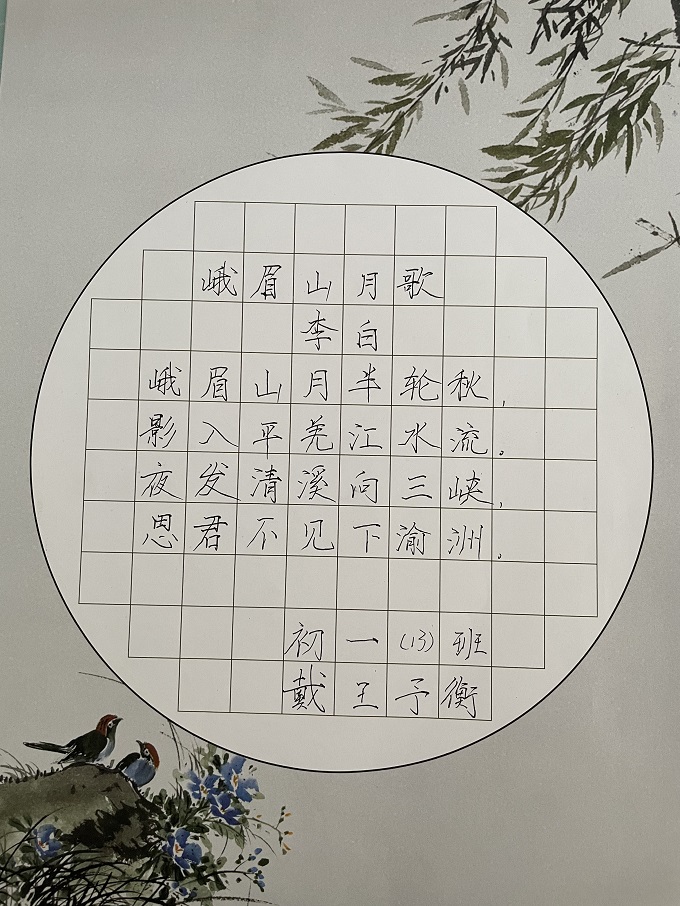 峨眉山月歌
李白
峨眉山月半轮秋，
影入平羌江水流。
夜发清溪向三峡，
思君不见下渝洲。
初一（13）班
戴王予衡